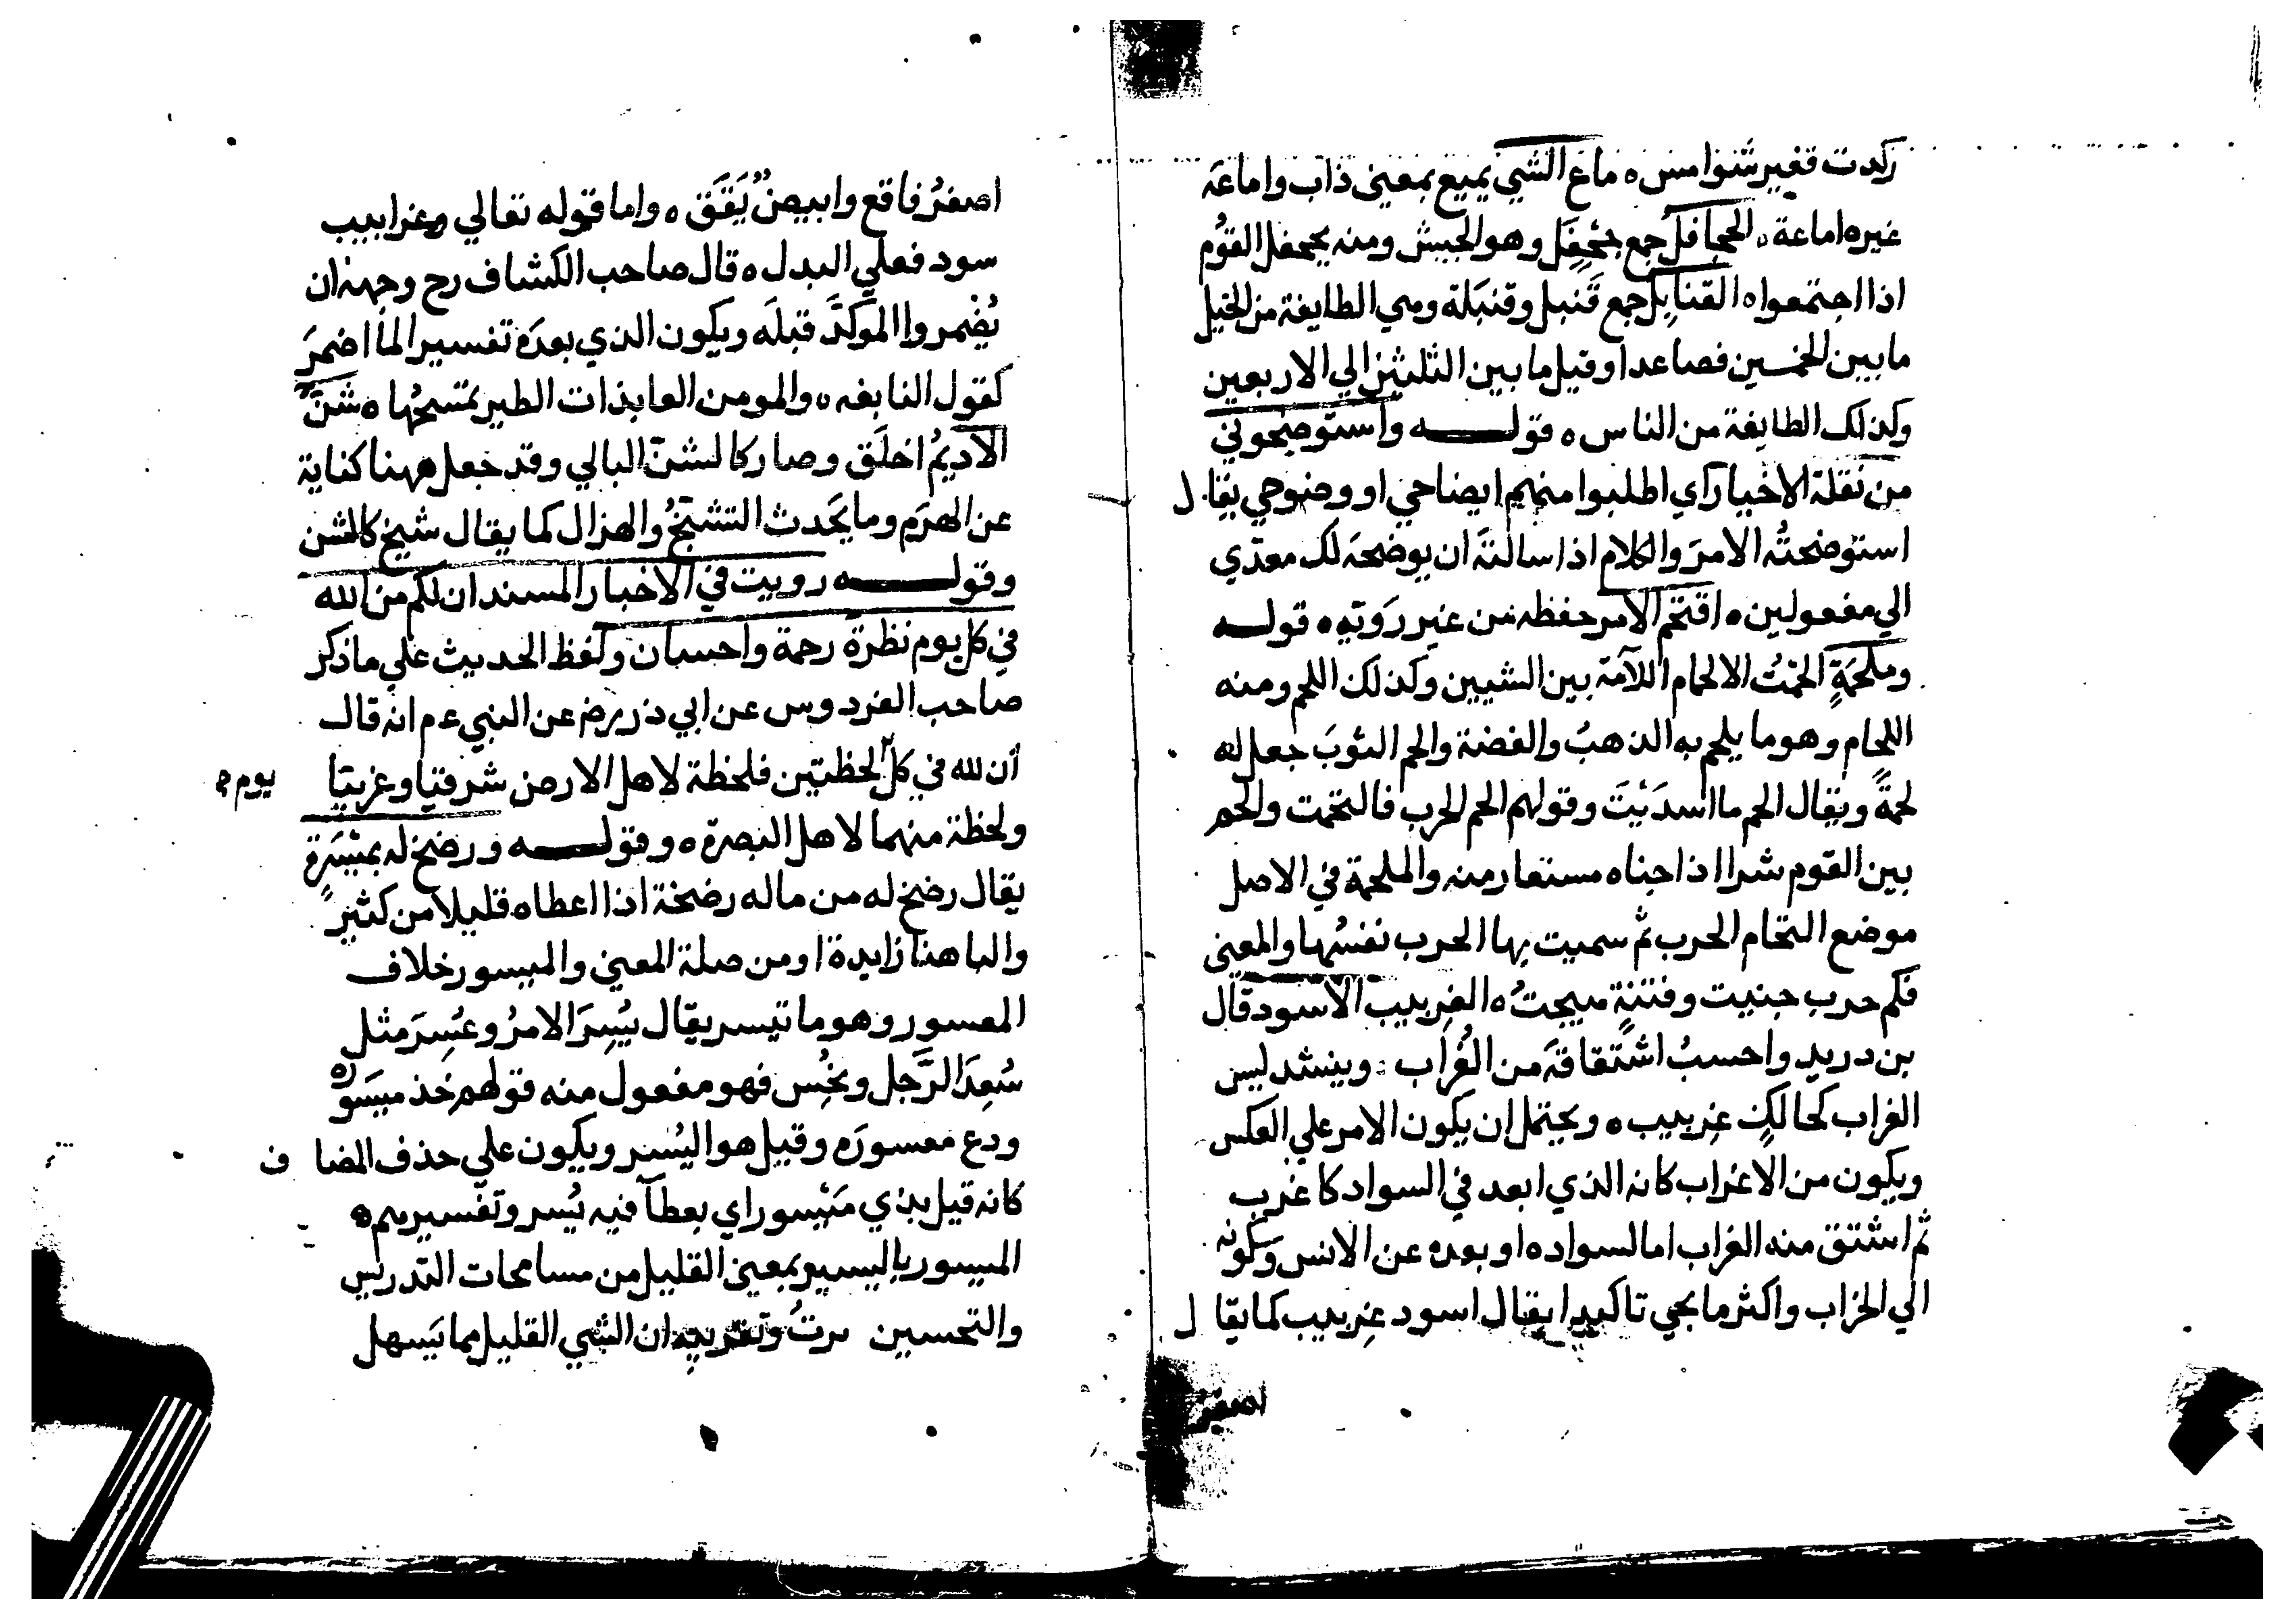 ركدت فغير شنوا مس ه ماع الشي يميع بمعني ذاب واماعَه
غيره اماعة ه الحجافل جمع جَحْفَل وهو الجيش ومنه يجحفل القوْم
اذا اجتمعوا ه القنابِل جمع قَنبل وقنبَلة وهي الطايفة من الخيل
ما بين الخمسين فصاعدا وقيل ما بين الثلثين الي الاربعين
وكذلك الطايفة من الناس ه قولـــه واستوضحوني
من نقلة الاخبار اي اطلبوا منهم ايضاحي او وضوحي يقال
استوضحتُه الامرَ والكلام اذا سالتَه ان يوضحَه لك معدّي
الي مفعولين ه اقتحم الامر حفظه من غير رَوَيةٍ ه قولـــه
وملحَمَةٍ الحَمتُ الالحام اللآمَة بين الشيين وكذلك اللحم ومنه
اللحام وهو ما يلحم به الذهبُ والفضة والحم الثوبَ جعل له
لحمةً ويقال الحم ما اسدَيْتَ وقولهم الحم الحرب فالتحمت والحم
بين القوم شرا اذا جناه مستعار منه والملحمة في الاصل
موضع التحام الحرب ثم سميت بها الحرب نفسُها والمعني
فكم حرب جنيت وفتنةٍ هيجتُ ه الغربيب الاسود قال
بن دريد واحسبُ اشتقاقَه من الغُراب وينشد ليس
الغراب كحالكٍ غربيب ه ويحتمل ان يكون الامر علي العكس
ويكون من الاغراب كانه الذي ابعد في السواد كاغرب
ثم اشتق منه الغراب اما لسواده او بعده عن الانس وكونه
الي الخراب واكثر ما يجي تاكيدا يقال اسود غربيب كما يقال
اصفر
اصفرُ فاقع وابيضُ يَقَق ه واما قوله تعالي وغرابيب
سود فعلي البدل ه قال صاحب الكشاف رح وجهه ان
يُضْمر والموَكَّد قبلَه ويكون الذي بعدَه تفسيرا لما اضمرَ
كقول النابغه ه والمومن العايذات الطير يمسَحُها ه شنَّ
الاديمُ اخلَق وصار كالشنّ البالي وقد جعل ههنا كناية
عن الهرَم وما يحَدث التشنّجُ والهزال كما يقال شيخ كالشن
وقولـــه رويت في الاخبار المسند ان لكم من الله
في كل يوم نظرةَ رحمة واحسان ولفظ الحديث علي ما ذكر
صاحب الفردوس عن ابي ذر رض عن النبي ءم انه قال
ان لله في كل لحظتين فلحظة لاهل الارض شرقيّا وغربيّا
يوم
ولحظة منهما لاهل البصرة ه وقولـــه ورضخ له بمَيْسَرة
يقال رضخ له من ماله رضخة اذا اعطاه قليلا من كثيرٍ
والبا هنا زايدة او من صلة المعني والميسور خلاف
المعسور وهو ما تيسر يقال يُسِرَ الامرُ وعُسِرَ مثل
سُعِدَ الرَّجل ونحُس فهو مفعول منه قولهم خذ ميسَورَه
ودع معسورَه وقيل هو اليُسر ويكون علي حذف المضاف
كانه قيل بذي مَيْسور اي بعطآ فيه يُسر وتفسيرهم
الميسور باليسير بمعني القليل من مسامحات التدريس
والتحسين وتقريبه ان الشي القليل مما يَسهل